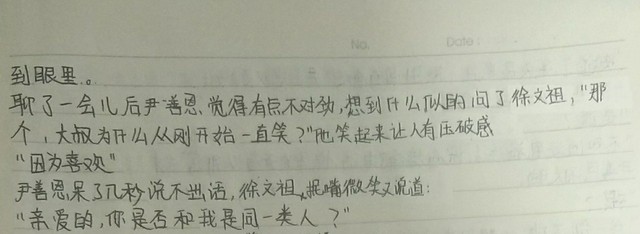 No.
Date:
到眼里。
聊了一会儿后尹善恩觉得有点不对劲,想到什么似的问了徐文祖,“那
个,大叔为什么从刚开始一直笑?”他笑起来让人有压破感
“因为喜欢”
尹善恩呆了几秒说不出话,徐文祖抿嘴微笑又说道:
“亲爱的,你是否和我是同一类人?”